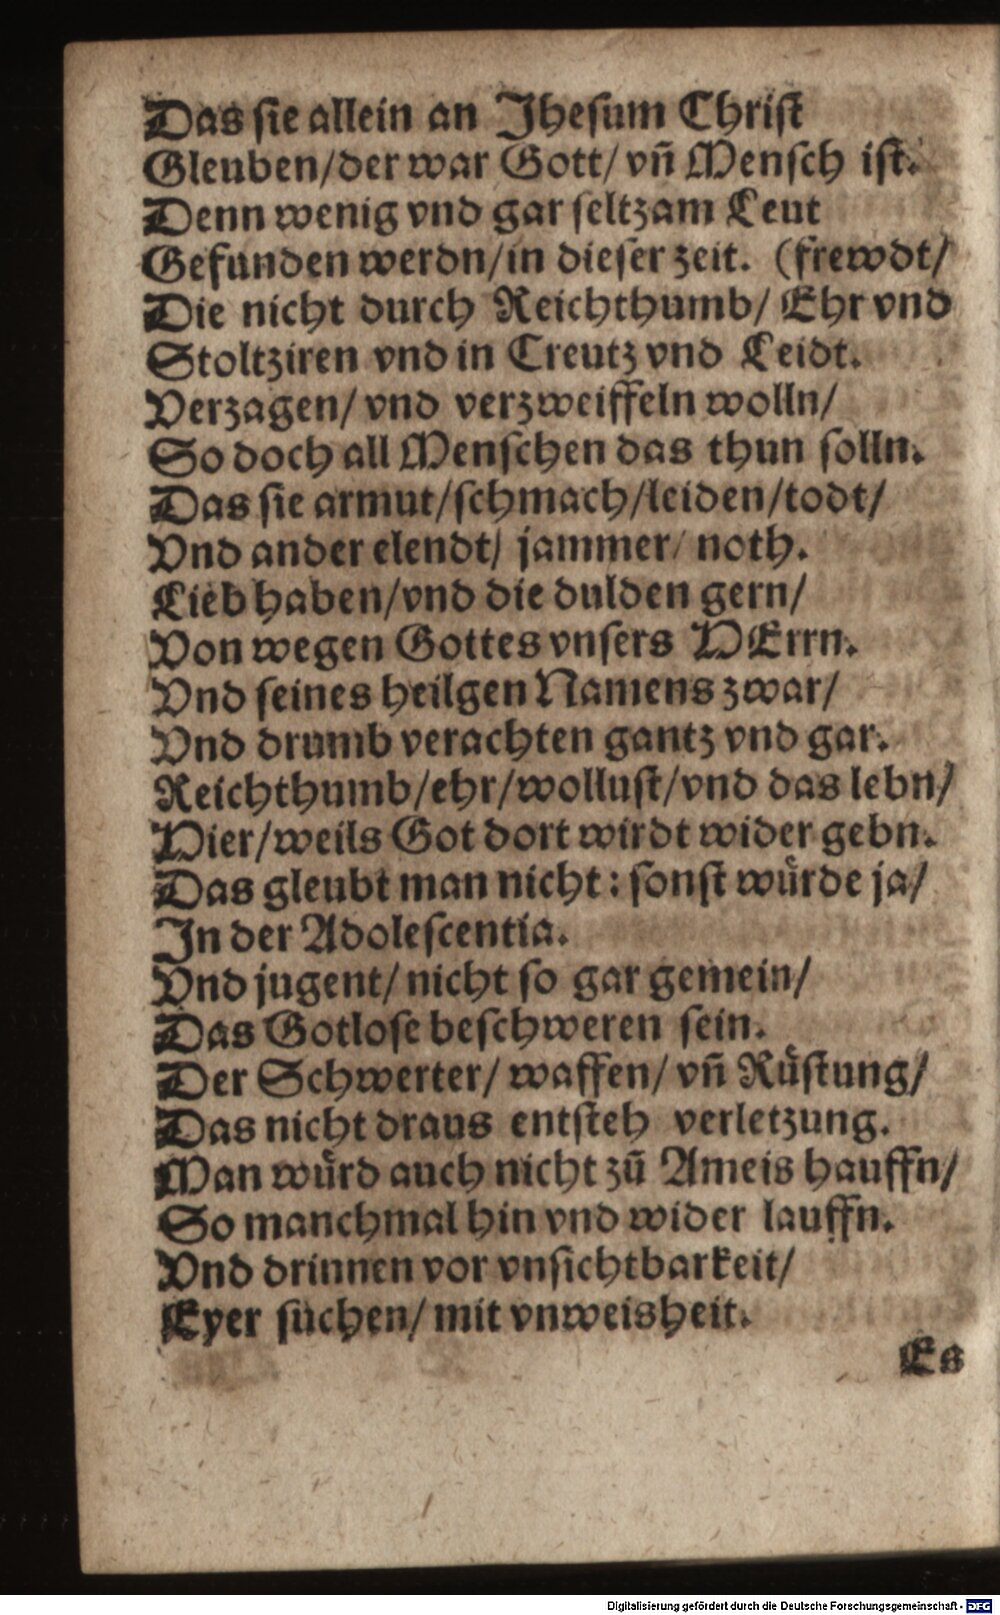 Das sie allein an Jhesum Christ
Gleuben/der war Gott/ vñ Mensch ist.
Denn wenig vnd gar seltzam Leut
Gefunden werdn/in dieser zeit. (frewdt/
Die nicht durch Reichthumb/ Ehr vnd
Stoltziren vnd in Creutz vnd Leidt.
Verzagen/ vnd verzweiffeln wolln/
So doch all Menschen das thun solln.
Das sie armut/schmach/leiden/todt/
Vnd ander elendt/ jammer/ noth.
Lieb haben/vnd die dulden gern/
Von wegen Gottes vnsers HErrn.
Vnd seines heilgen Namens zwar/
Vnd drumb verachten gantz vnd gar.
Reichthumb/ehr/wollust/vnd das lebn/
Hier/weils Got dort wirdt wider gebn.
Das gleubt man nicht: sonst wuͤrde ja/
In der Adolescentia.
Vnd jugent/ nicht so gar gemein/
Das Gotlose beschweren sein.
Der Schwerter/ waffen/ vñ Ruͤstung/
Das nicht draus entsteh verletzung.
Man wuͤrd auch nicht zū Ameis hauffn/
So manchmal hin vnd wider lauffn.
Vnd drinnen vor vnsichtbarkeit/
Eyer suchen/ mit vnweisheit.
Es
Digitalisierung gefördert durch die Deutsche Forschungsgemeinschaft - DFG